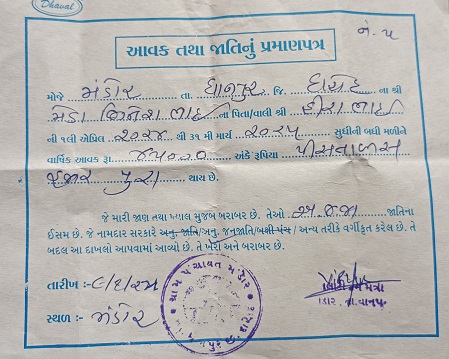 Dhaval
નં. ૫
આવક તથા જાતિનું પ્રમાણપત્ર
મોજે મંડોર તા. ધાનપુર જિ. દાહોદ ના શ્રી
મેડા જિનેશભાઇ ના પિતા/વાલી શ્રી હીરાભાઇ
ની ૧લી એપ્રિલ ૨૦૨૪ થી ૩૧ મી માર્ચ ૨૦૨૫ સુધીની બધી મળીને
વાર્ષિક આવક રૂા. ૪૫૦૦૦ અંકે રૂપિયા પીસતાળીસ
હજાર પુરા થાય છે.
જે મારી જાણ તથા ખ્યાલ મુજબ બરાબર છે. તેઓ જાતિના
ઈસમ છે. જે નામદાર સરકારે અનુ. જાતિ/અનુ. જનજાતિ/બક્ષી પંચ/ અન્ય તરીકે વર્ગીકૃત કરેલ છે. તે
બદલ આ દાખલો આપવામાં આવ્યો છે. તે ખરો અને બરાબર છે.
તારીખ :-
સ્થળ :- મંડોર
ગ્રામ પંચાયત મંડોર